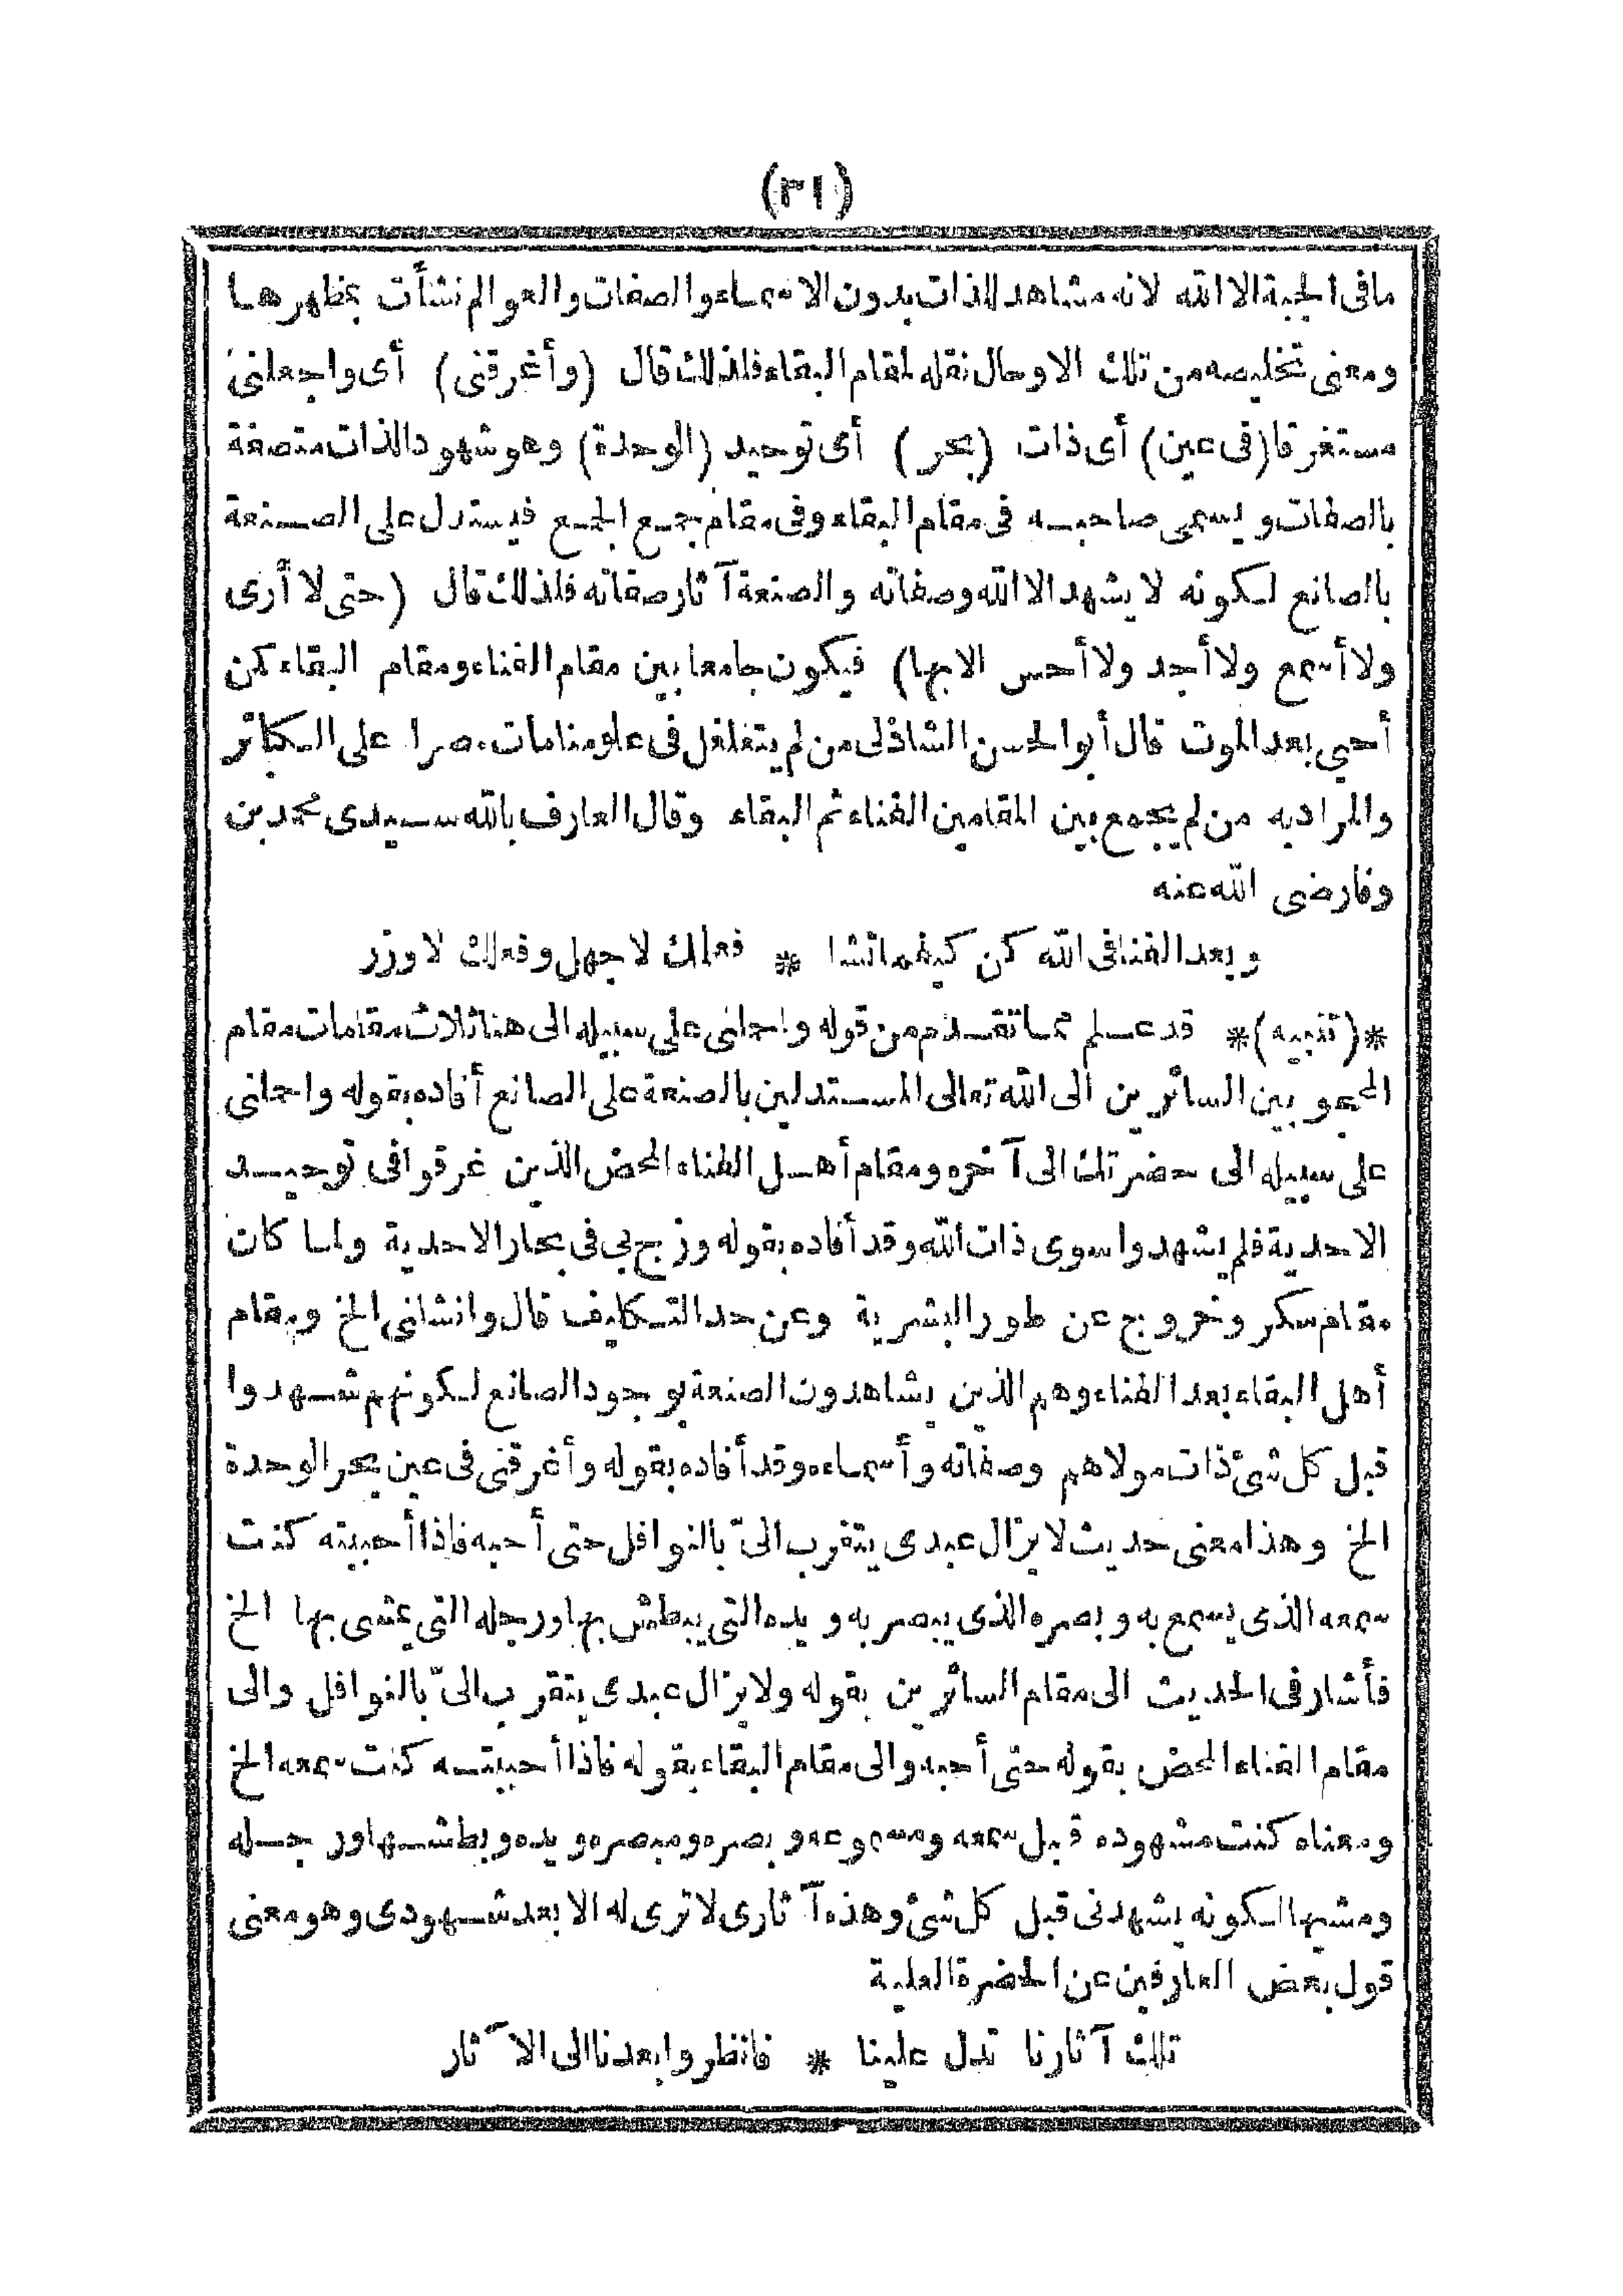 (٣١)
مافى الجبة الا الله لانه مشاهد للذات بدون الاسماء والصفات والعوالم نشأت بمظهرها
ومعنى تخليصه من تلك الاوحال نقله لمقام البقاء فلذلك قال (وأغرقنى) أى واجعلنى
مستغرقا (فى عين) أى ذات (بحر) أى توحيد (الوحدة) وهو شهود الذات متصفة
بالصفات ويسمى صاحبه فى مقام البقاء وفى مقام جمع الجمع فيستدل على الصنعة
بالصانع لكونه لا يشهد الا الله وصفاته والصنعة آثار صفاته فلذلك قال (حتى لا أرى
ولا أسمع ولا أجد ولا أحس الا بها) فيكون جامعا بين مقام الفناء ومقام البقاء كمن
أحيى بعد الموت قال أبو الحسن الشاذلى من لم يتغلغل فى علومنا مات مصرا على الكبائر
والمراد به من لم يجمع بين المقامين الفناء ثم البقاء وقال العارف بالله سيدى محمد بن
وفا رضى الله عنه
وبعد الفنا فى الله كن كيفما تشا * فعلمك لا جهل وفعلك لا وزر
*(تنبيه)* قد علم مما تقدم من قوله واحملنى على سبيله الى هنا ثلاث مقامات مقام
المحجوبين السائرين الى الله تعالى المستدلين بالصنعة على الصانع أفاده بقوله واحملنى
على سبيله الى حضرتك الى آخره ومقام أهل الفناء المحض الذين غرقوا فى توحيد
الاحدية فلم يشهدوا سوى ذات الله وقد أفاده بقوله وزج بى فى بحار الاحدية ولما كان
مقام سكر وخروج عن طور البشرية وعن حد التكليف قال وانشلنى الخ ومقام
أهل البقاء بعد الفناء وهم الذين يشاهدون الصنعة بوجود الصانع لكونهم شهدوا
قبل كل شئ ذات مولاهم وصفاته وأسماءه وقد أفاده بقوله وأغرقنى فى عين بحر الوحدة
الخ وهذا معنى حديث لا يزال عبدى يتقرب الىّ بالنوافل حتى أحبه فاذا أحببته كنت
سمعه الذى يسمع به وبصره الذى يبصر به ويده التى يبطش بها ورجله التى يمشى بها الخ
فأشار فى الحديث الى مقام السائرين بقوله ولا يزال عبدى يتقرب الىّ بالنوافل والى
مقام الفناء المحض بقوله حتى أحبه والى مقام البقاء بقوله فاذا أحببته كنت سمعه الخ
ومعناه كنت مشهوده قبل سمعه ومسموعه وبصره ومبصره ويده وبطشها ورجله
ومشيها لكونه يشهدنى قبل كل شئ وهذه آثارى لا ترى له الا بعد شهودى وهو معنى
قول بعض العارفين عن الحضرة العلية
تلك آثارنا تدل علينا * فانظروا بعدنا الى الآثار